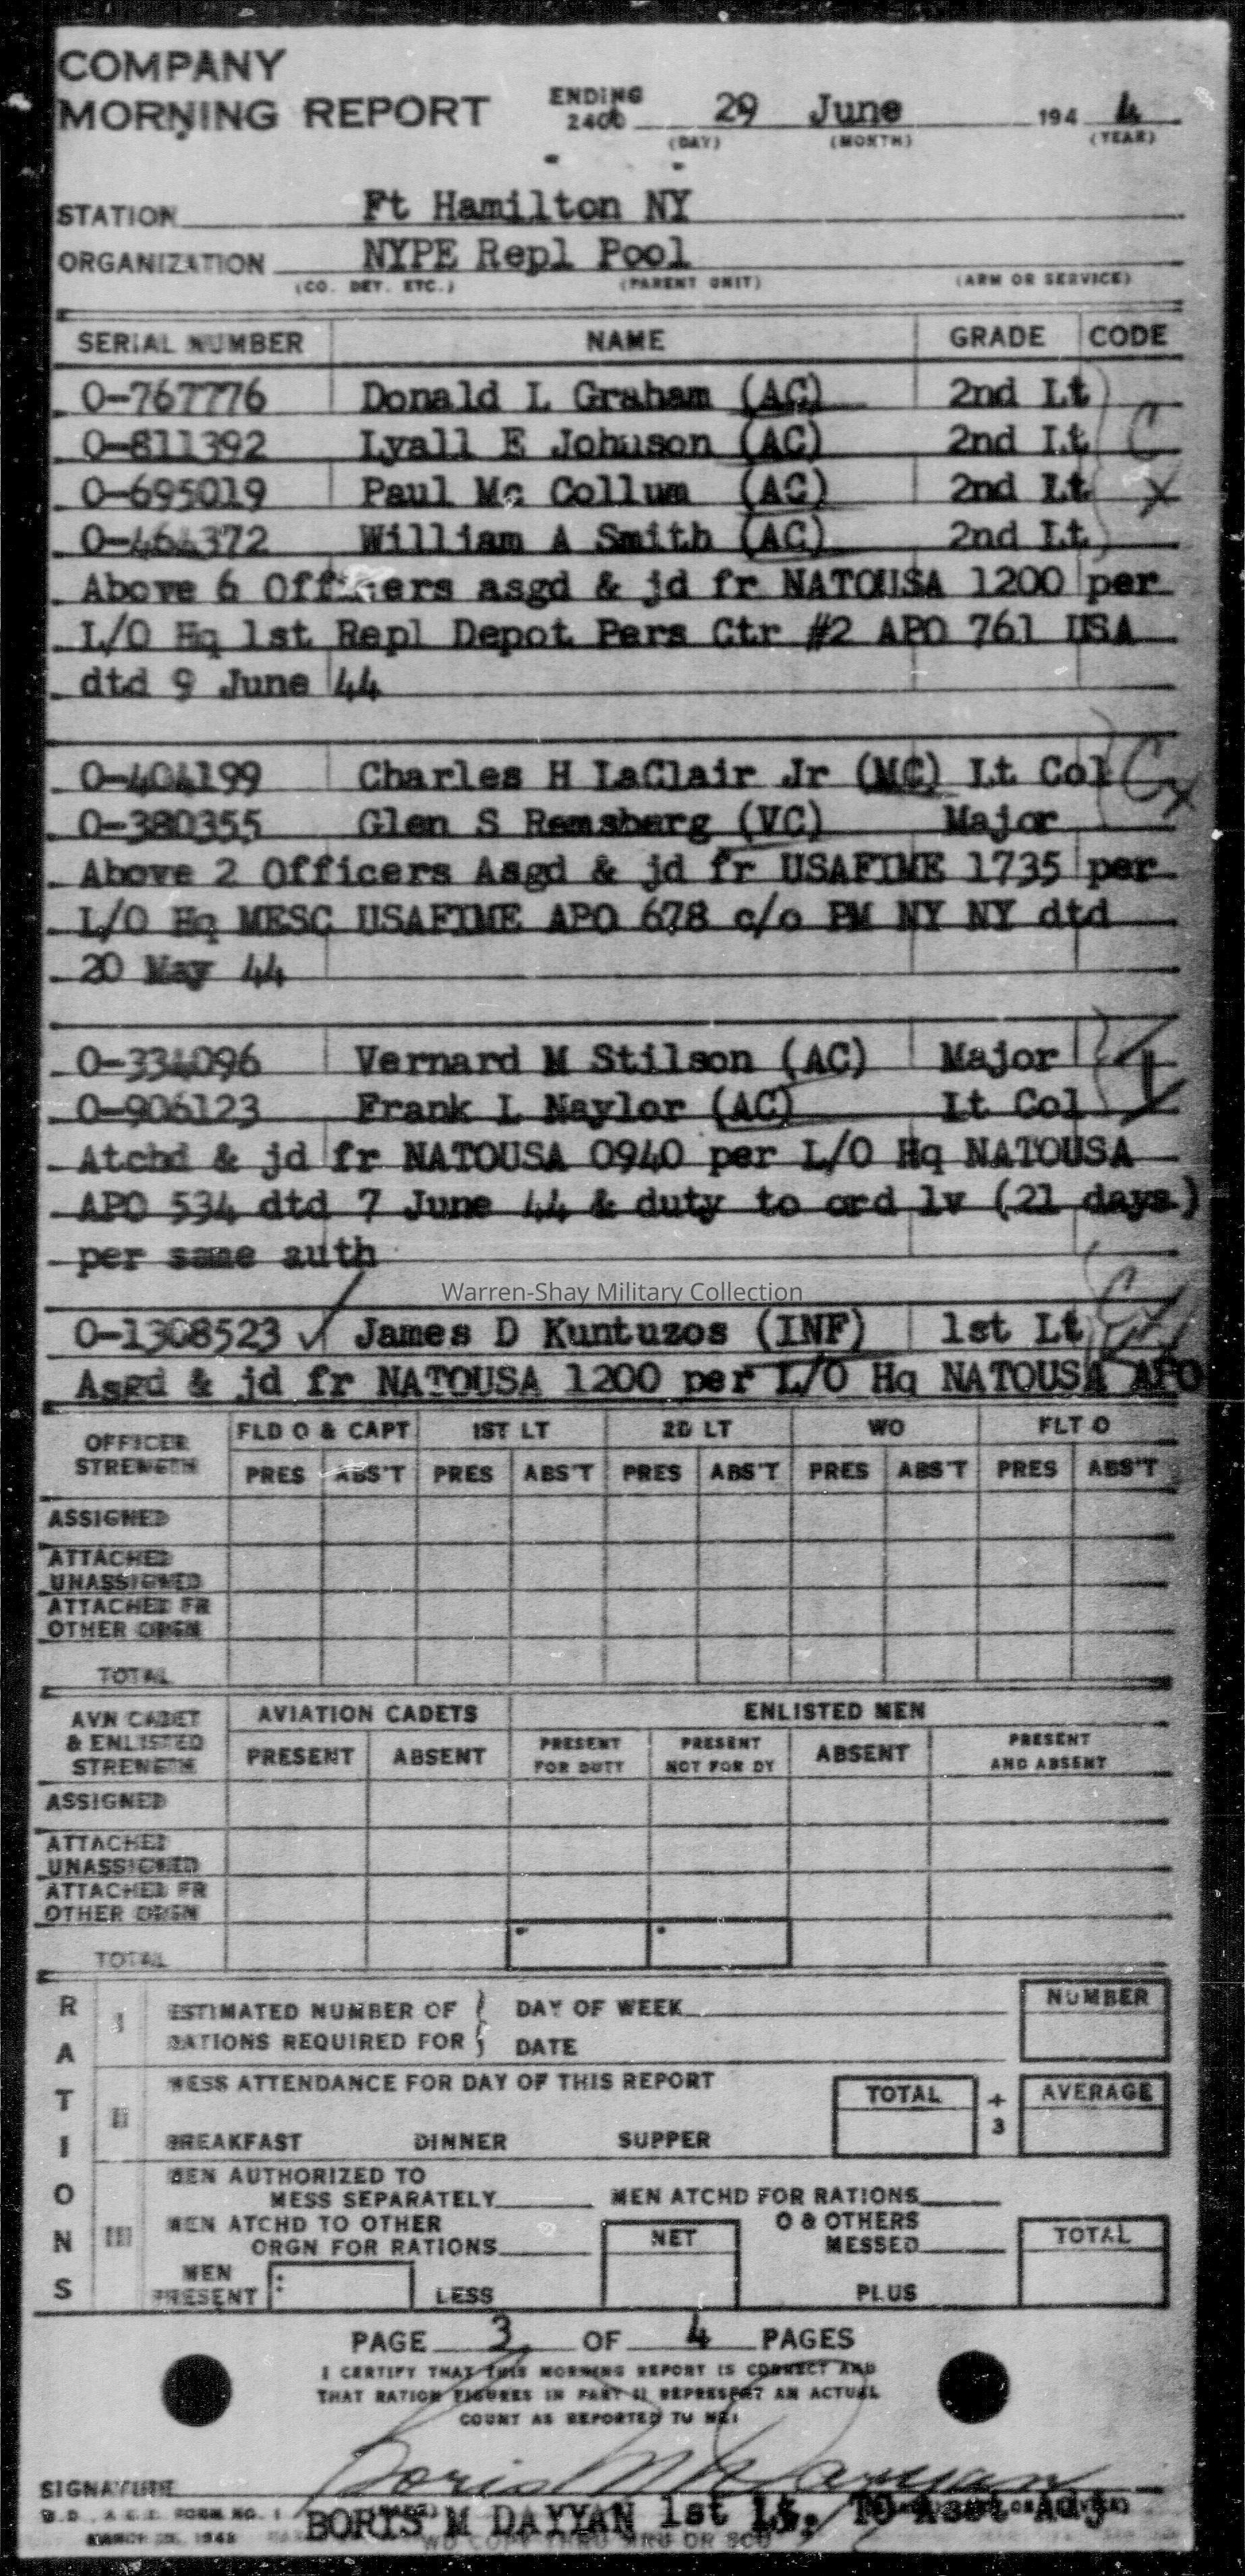 COMPANY
MORNING REPORT ENDING 2400 29 June 194 4
(DAY) (MONTH) (YEAR)
STATION Ft Hamilton NY
ORGANIZATION NYPE Repl Pool
(CO. DET. ETC.) (PARENT UNIT) (ARM OR SERVICE)
SERIAL NUMBER NAME GRADE CODE
O-767776 Donald L Graham (AC) 2nd Lt
O-811392 Lyall E Johnson (AC) 2nd Lt C
O-695019 Paul Mc Collum (AC) 2nd Lt X
O-464372 William A Smith (AC) 2nd Lt
Above 6 Officers asgd & jd fr NATOUSA 1200 per
L/O Hq 1st Repl Depot Pers Ctr #2 APO 761 USA
dtd 9 June 44
O-404199 Charles H LaClair Jr (MC) Lt Col C
O-380355 Glen S Remsberg (VC) Major x
Above 2 Officers Asgd & jd fr USAFIME 1735 per
L/O Hq MESC USAFIME APO 678 c/o PM NY NY dtd
20 May 44
O-334096 Vernard M Stilson (AC) Major
O-906123 Frank L Naylor (AC) Lt Col
Atchd & jd fr NATOUSA 0940 per L/O Hq NATOUSA
APO 534 dtd 7 June 44 & duty to ord lv (21 days)
per same auth
Warren-Shay Military Collection
O-1308523 ✓ James D Kuntuzos (INF) 1st Lt
Asgd & jd fr NATOUSA 1200 per L/O Hq NATOUSA APO
OFFICER STRENGTH FLD O & CAPT 1ST LT 2D LT WO FLT O
PRES ABS'T PRES ABS'T PRES ABS'T PRES ABS'T PRES ABS'T
ASSIGNED
ATTACHED
UNASSIGNED
ATTACHED FR
OTHER ORGN
TOTAL
AVN CADET & ENLISTED STRENGTH AVIATION CADETS ENLISTED MEN
PRESENT ABSENT PRESENT FOR DUTY PRESENT NOT FOR DY ABSENT PRESENT AND ABSENT
ASSIGNED
ATTACHED
UNASSIGNED
ATTACHED FR
OTHER ORGN
TOTAL
RATIONS
I ESTIMATED NUMBER OF RATIONS REQUIRED FOR } DAY OF WEEK NUMBER
DATE
II MESS ATTENDANCE FOR DAY OF THIS REPORT TOTAL ÷ 3 AVERAGE
BREAKFAST DINNER SUPPER
III MEN AUTHORIZED TO
MESS SEPARATELY MEN ATCHD FOR RATIONS
MEN ATCHD TO OTHER
ORGN FOR RATIONS NET O & OTHERS MESSED TOTAL
MEN PRESENT LESS PLUS
PAGE 3 OF 4 PAGES
I CERTIFY THAT THIS MORNING REPORT IS CORRECT AND
THAT RATION FIGURES IN PART II REPRESENT AN ACTUAL
COUNT AS REPORTED TO ME:
SIGNATURE Boris M Dayyan
W.D., A.G.O. FORM NO. 1 BORIS M DAYYAN 1st Lt, TC Asst Adj
WD COPY THRU MRU OR SCU